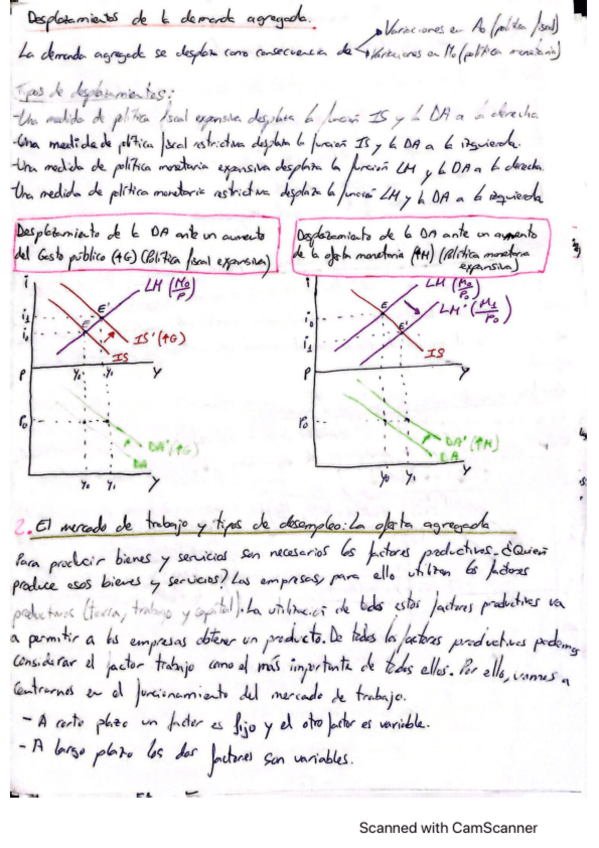 Desplazamientos de la demanda agregada.
Variaciones en A₀ (política fiscal)
La demanda agregada se desplaza como consecuencia de
Variaciones en M₀ (política monetaria)
Tipos de desplazamientos:
-Una medida de política fiscal expansiva desplaza la función IS y la DA a la derecha.
-Una medida de política fiscal restrictiva desplaza la función IS y la DA a la izquierda.
-Una medida de política monetaria expansiva desplaza la función LM y la DA a la derecha.
-Una medida de política monetaria restrictiva desplaza la función LM y la DA a la izquierda
Desplazamiento de la DA ante un aumento
del Gasto público (↑G) (Política fiscal expansiva)
Desplazamiento de la DA ante un aumento
de la oferta monetaria (↑M) (Política monetaria
expansiva)
i
LM (M₀/P)
E'
i₁
E
i₀
IS' (↑G)
IS
P
Y₀
Y₁
Y
P₀
DA' (↑G)
DA
Y₀
Y₁
Y
i
LM (M₀/P₀)
LM' (M₁/P₀)
E
i₀
E'
i₁
IS
P
Y
P₀
DA' (↑M)
DA
Y₀
Y₁
Y
2. El mercado de trabajo y tipos de desempleo: La oferta agregada
Para producir bienes y servicios son necesarios los factores productivos. ¿Quién
produce esos bienes y servicios? Las empresas, para ello utilizan los factores
productivos (tierra, trabajo y capital). La utilización de todos estos factores productivos va
a permitir a las empresas obtener un producto. De todos los factores productivos podemos
considerar el factor trabajo como el más importante de todos ellos. Por ello, vamos a
centrarnos en el funcionamiento del mercado de trabajo.
- A corto plazo un factor es fijo y el otro factor es variable.
- A largo plazo los dos factores son variables.
Scanned with CamScanner